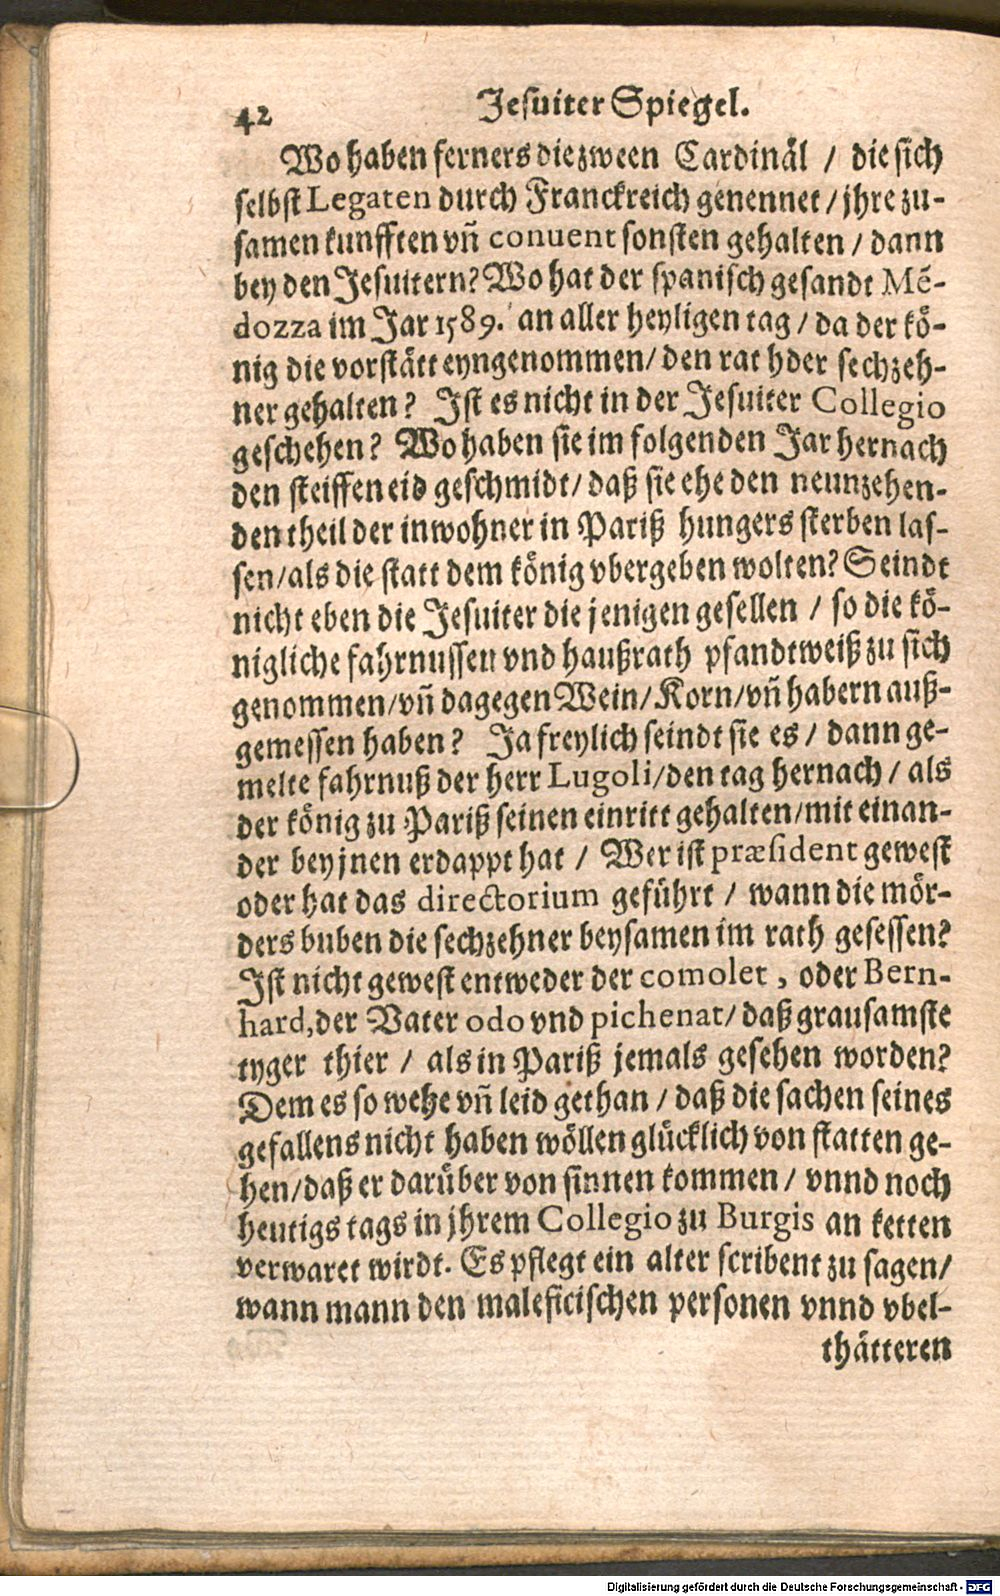 42 Jesuiter Spiegel.
Wo haben ferners die zween Cardinäl / die sich
selbst Legaten durch Franckreich genennet / jhre zu-
samen kunfften vñ conuent sonsten gehalten / dann
bey den Jesuitern? Wo hat der spanisch gesandt Mẽ-
dozza im Jar 1589. an aller heyligen tag / da der kö-
nig die vorstätt eyngenommen / den rat hder sechzeh-
ner gehalten? Ist es nicht in der Jesuiter Collegio
geschehen? Wo haben sie im folgenden Jar hernach
den steiffen eid geschmidt / daß sie ehe den neunzehen-
den theil der inwohner in Pariß hungers sterben las-
sen / als die statt dem könig vbergeben wolten? Seindt
nicht eben die Jesuiter die jenigen gesellen / so die kö-
nigliche fahrnussen vnd haußrath pfandtweiß zu sich
genommen / vñ dagegen Wein / Korn / vñ habern auß-
gemessen haben? Ja freylich seindt sie es / dann ge-
melte fahrnuß der herr Lugoli / den tag hernach / als
der könig zu Pariß seinen einritt gehalten / mit einan-
der bey jnen erdappt hat / Wer ist præsident gewest
oder hat das directorium geführt / wann die mör-
ders buben die sechzehner beysamen im rath gesessen?
Ist nicht gewest entweder der comolet, oder Bern-
hard, der Vater odo vnd pichenat / daß grausamste
tyger thier / als in Pariß jemals gesehen worden?
Dem es so wehe vñ leid gethan / daß die sachen seines
gefallens nicht haben wöllen glücklich von statten ge-
hen / daß er darüber von sinnen kommen / vnnd noch
heutigs tags in jhrem Collegio zu Burgis an ketten
verwaret wirdt. Es pflegt ein alter scribent zu sagen /
wann mann den maleficischen personen vnnd vbel-
thätteren
Digitalisierung gefördert durch die Deutsche Forschungsgemeinschaft - DFG